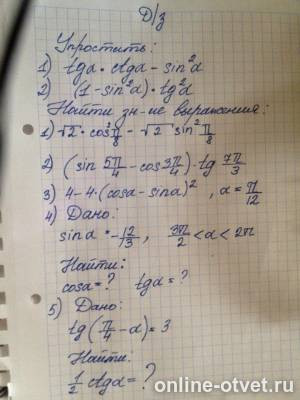 Д/з
Упростить:
1) tgα · ctgα - sin²α
2) (1 - sin²α) · tg²α
Найти зн-ие выражения:
1) √2 · cos²π/8 - √2 sin²π/8
2) (sin 5π/4 - cos 3π/4) · tg 7π/3
3) 4 - 4 · (cosα - sinα)², α = π/12
4) Дано:
sinα = -12/13, 3π/2 < α < 2π
Найти:
cosα = ? tgα = ?
5) Дано:
tg(π/4 - α) = 3
Найти:
1/2 ctgα = ?
online-otvet.ru